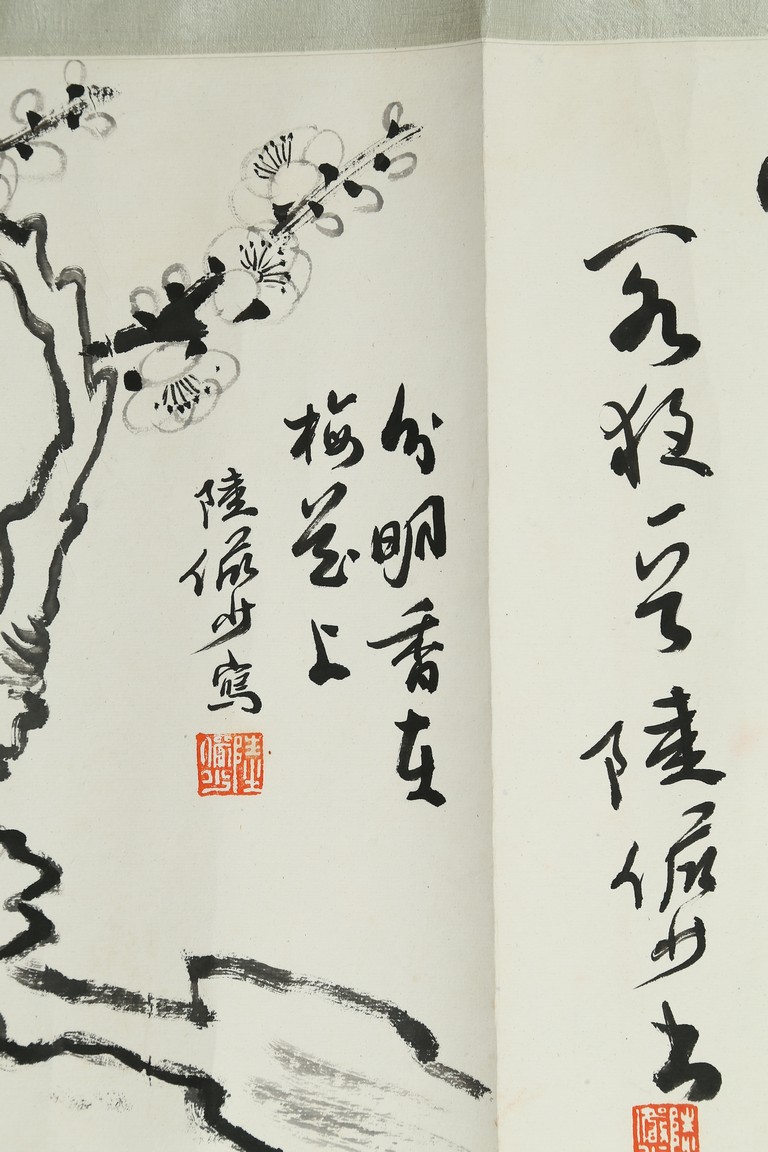 陸儼少書
陸儼
分明香在
梅花上
陸儼少寫
陸儼少